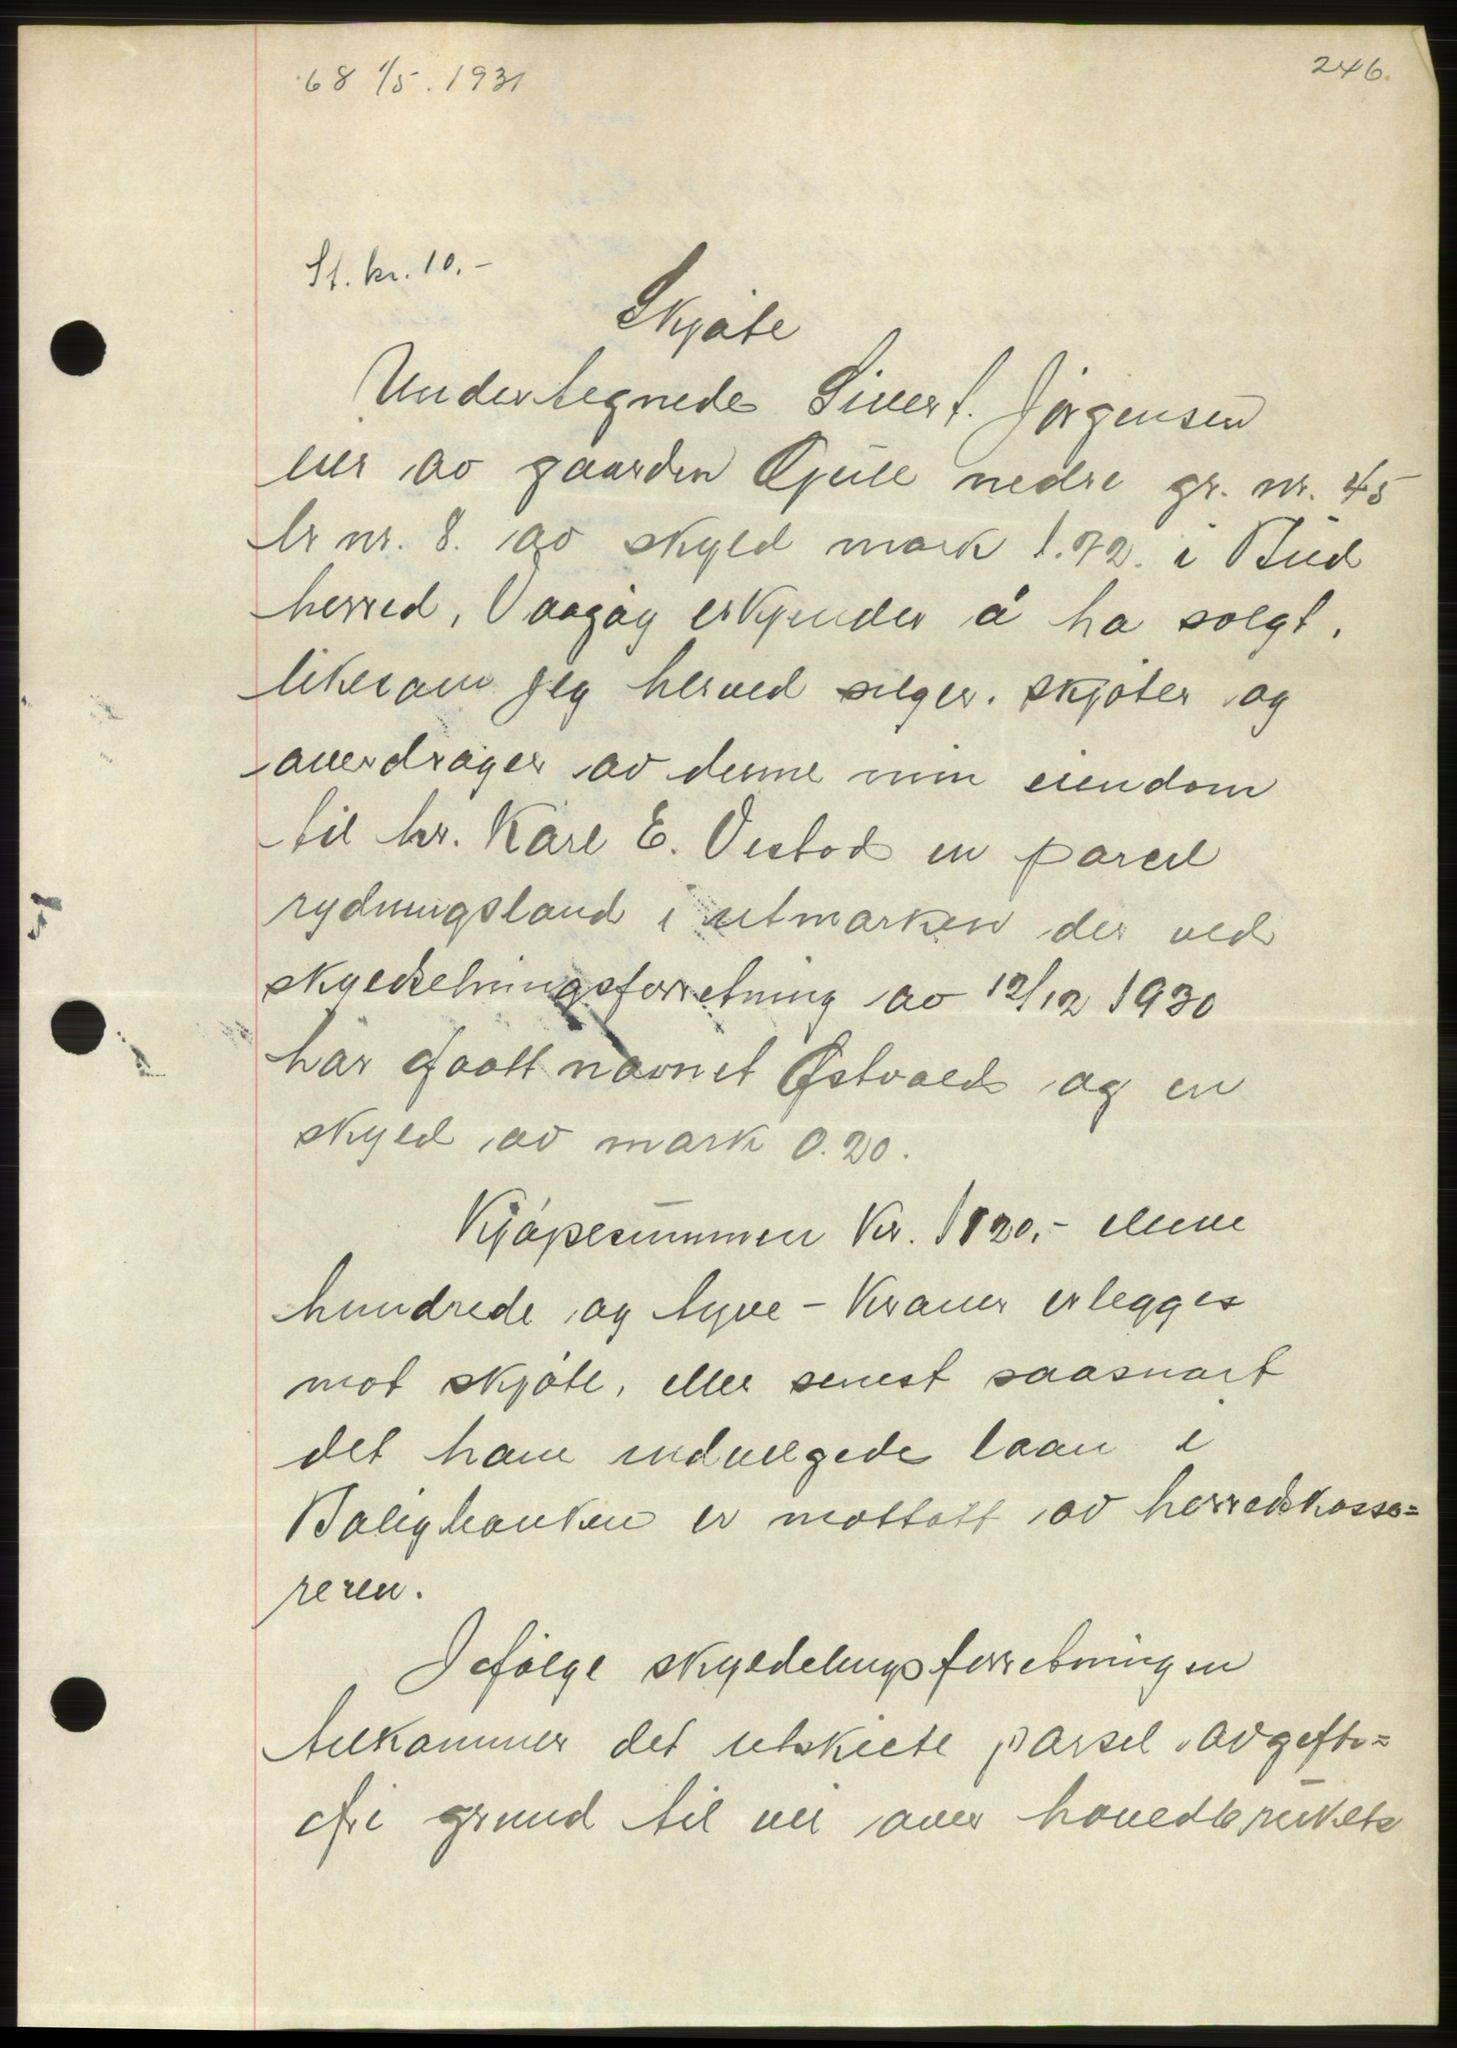 68 1/5. 1931
246.
St. kr. 10.-
Skjøte
Undertegnede Sivert. Jörgensen
eier av gaarden Gule nedre gr. nr. 45
br nr. 8. av skyld mark 1.72. i Bud
herred, Vaagøy erkjender å ha solgt,
likesom jeg herved selger. skjøter og
overdrager av denne min eiendom
til hr. Karl E. Vestad en parcel
rydningsland i utmarken der ved
skyldselningsforretning av 12/12 1930
har faatt navnet Østvold og en
skyld av mark 0.20.
Kjøpesummen Kr. 1120,- elleve
hundrede og tyve - Kroner erlegges
mot skjøte, eller senest saasnart
det ham indvilgede laan i
Boligbanken er mottatt av herredskasse=
reren.
Ifølge skylddelingsforretningen
tilkommer det utskilte parsel avgifts=
fri grund til vei over hovedbrukets